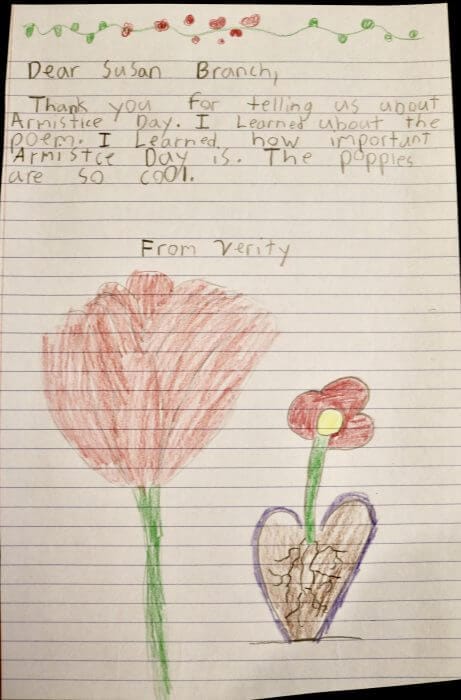 Dear Susan Branch,
Thank you for telling us about
Armistice Day. I Learned about the
poem. I Learned how important
Armistce Day is. The poppies
are so cool.
From Verity